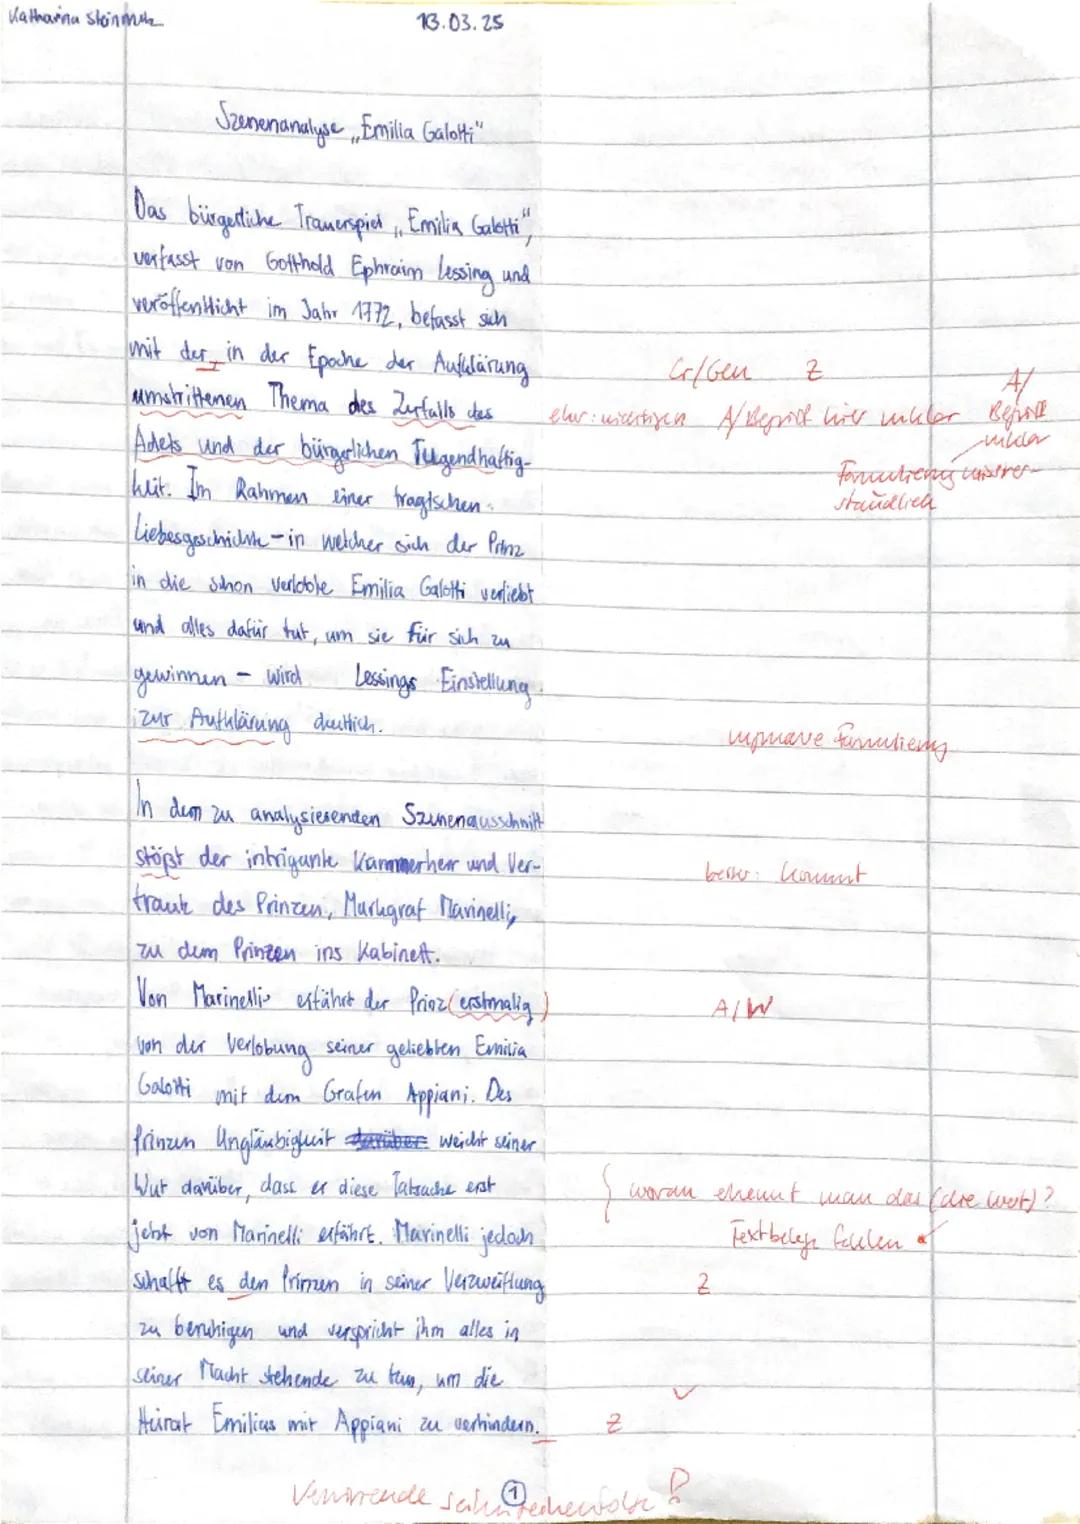 Katharina
13.03.25
Szenenanalyse „Emilia Galotti"
Das bürgerliche Trauerspiel „Emilia Galotti",
verfasst von Gotthold Ephraim Lessing und
veröffentlicht im Jahr 1772, befasst sich
mit der in der Epoche der Aufklärung
Gr/Gen Z
umstrittenen Thema des Zerfalls des
A/Begriff hier unklar
A/ Begriff unklar
Adels und der bürgerlichen Tugendhaftig-
Formulierung missver-
keit. Im Rahmen einer tragischen
ständlich
Liebesgeschichte – in welcher sich der Prinz
in die schon verlobte Emilia Galotti verliebt
und alles dafür tut, um sie für sich zu
gewinnen – wird Lessings Einstellung
zur Aufklärung deutlich.
Formulierung
In dem zu analysierenden Szenenausschnitt
stößt der intrigante Kammerherr und Ver-
besser: kommt
traute des Prinzen, Markgraf Marinelli,
zu dem Prinzen ins Kabinett.
Von Marinelli erfährt der Prinz (erstmalig)
A/W
von der Verlobung seiner geliebten Emilia
Galotti mit dem Grafen Appiani. Des
Prinzen Ungläubigkeit darüber weicht seiner
Wut darüber, dass er diese Tatsache erst
woran erkennt man das (die Wut)?
jetzt von Marinelli erfährt. Marinelli jedoch
Textbelege fehlen
schafft es den Prinzen in seiner Verzweiflung
Z
zu beruhigen und verspricht ihm alles in
seiner Macht stehende zu tun, um die
Heirat Emilias mit Appiani zu verhindern.
Z
1
Verwirrende